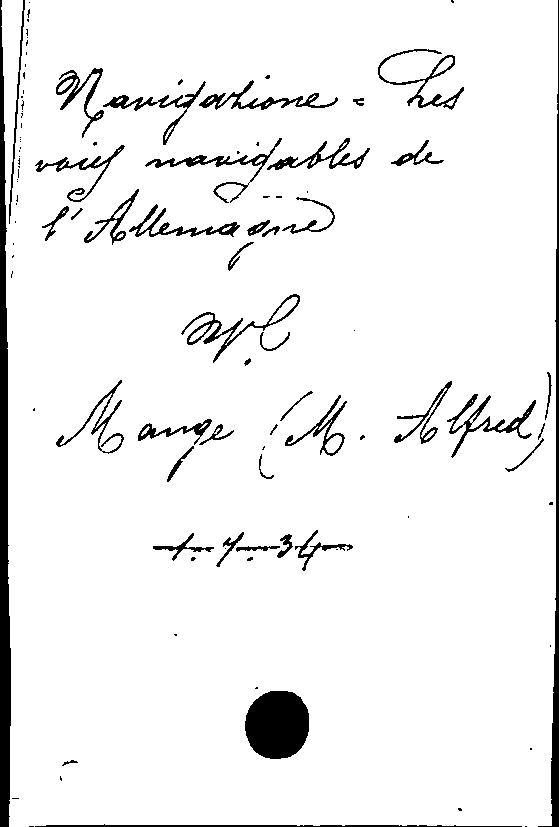 Navigazione = Les
voies navigables de
l'Allemagne
Mange (M. Alfred)
1. 7. 34